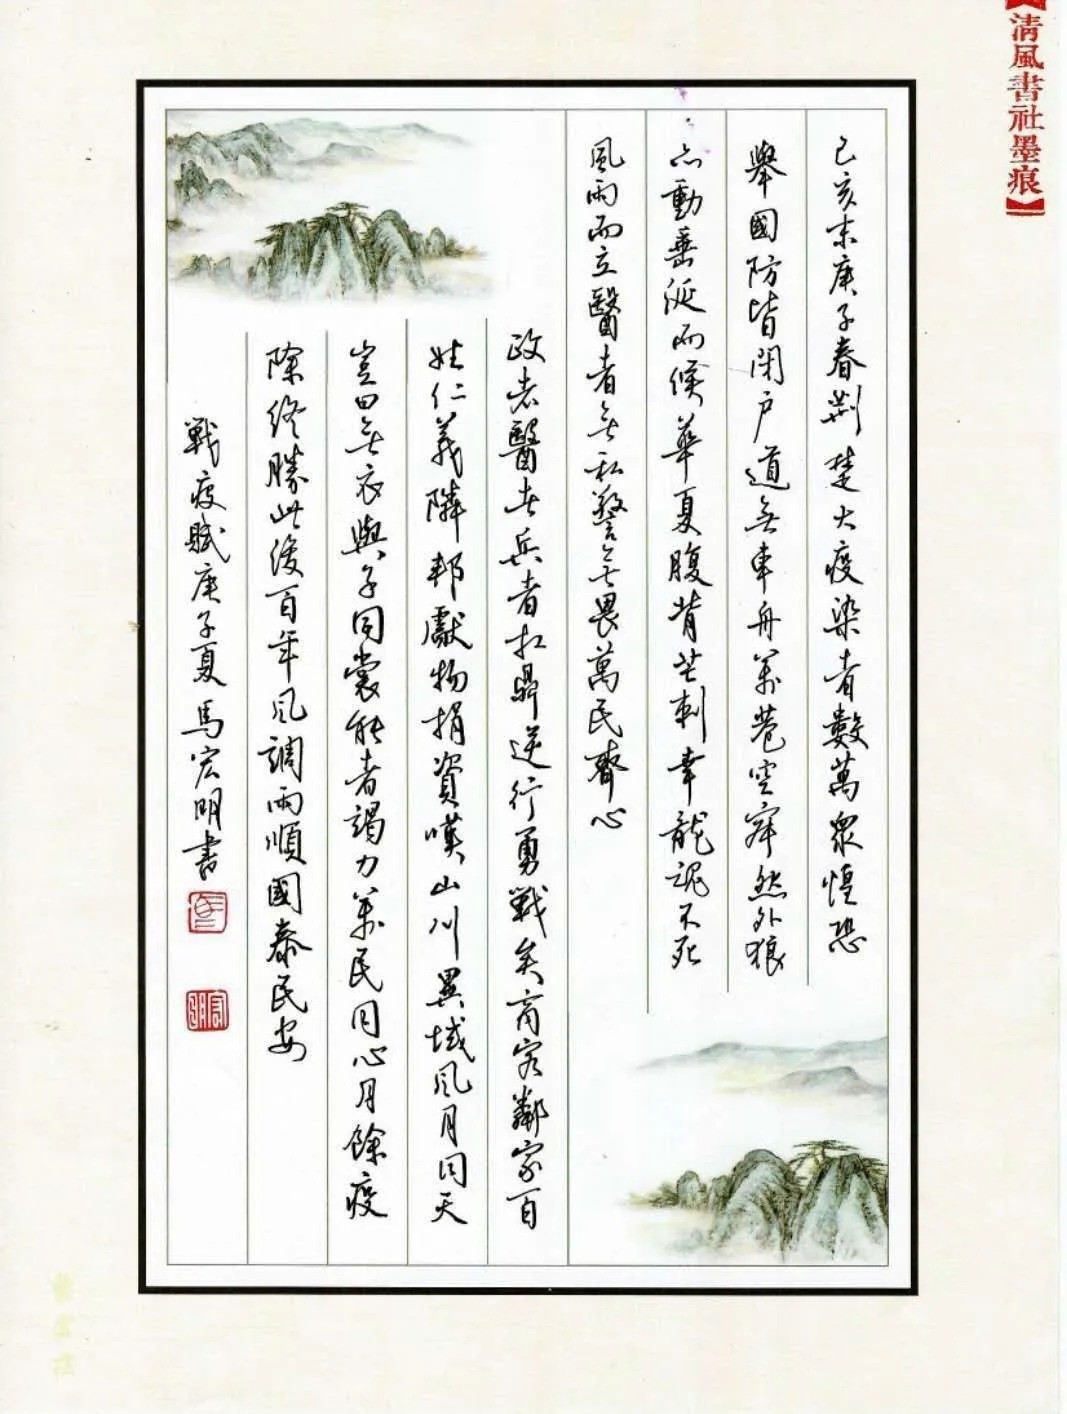 己亥末庚子春荆楚大疫染者數萬眾惶恐
舉國防皆閉户道無車舟萬巷空寂然外狼
亦動垂涎而候華夏腹背芒刺幸龍魂不死
風雨而立醫者無私警無畏萬民齊心
政者醫者兵者扛鼎逆行勇戰矣商客鄰家百
姓仁義隣邦獻物捐資嘆山川異域風月同天
豈曰無衣與子同裳能者竭力萬民同心月餘疫
除終勝此後百年風調雨順國泰民安
戰疫賦庚子夏馬宏明書
【清風書社墨痕】